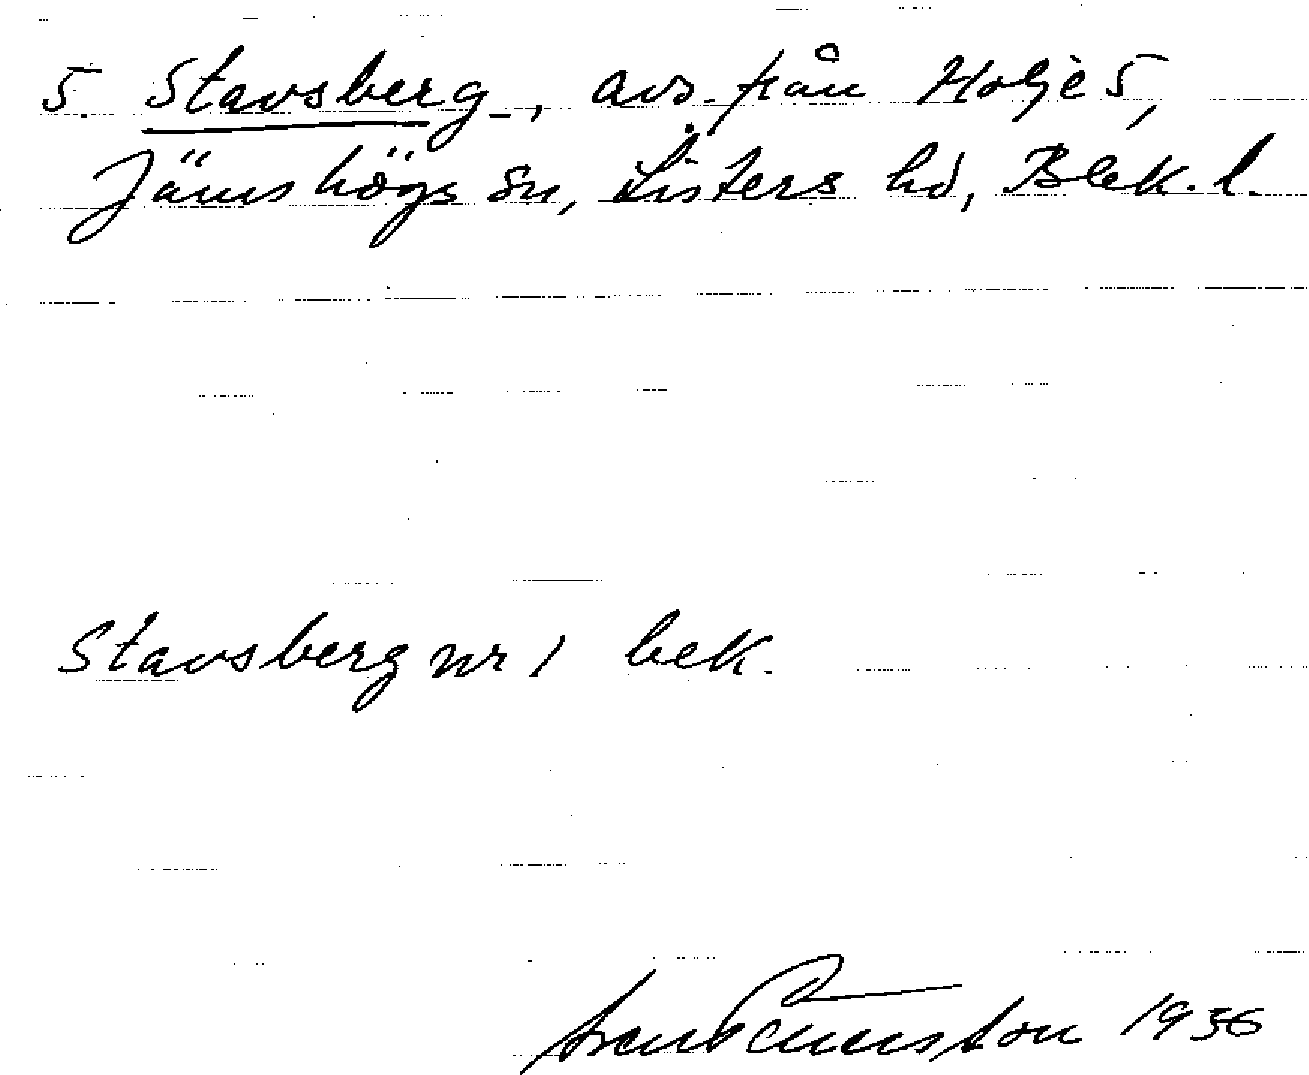 5. Stavsberg, avs. från Holje 5,
Jämshögs sn, Listers hd, Blek. l.
Stavsberg nr 1 bek.
1936